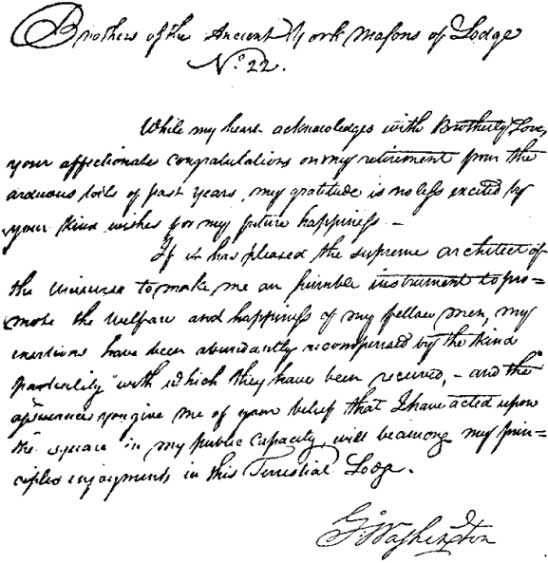 Brothers of the Ancient York Masons of Lodge
No. 22.
While my heart acknowledges with Brotherly Love,
your affectionate congratulations on my retirement from the
arduous toils of past years, my gratitude is no less excited by
your kind wishes for my future happiness. –
If it has pleased the supreme architect of
the Universe to make me an humble instrument to pro=
mote the welfare and happiness of my fellow men, my
exertions have been abundantly recompensed by the kind
partiality with which they have been received, – and the
assurances you give me of your belief that I have acted upon
the square in my public capacity, will be among my prin=
ciples enjoyments in this Terrestial Lodge.
G. Washington